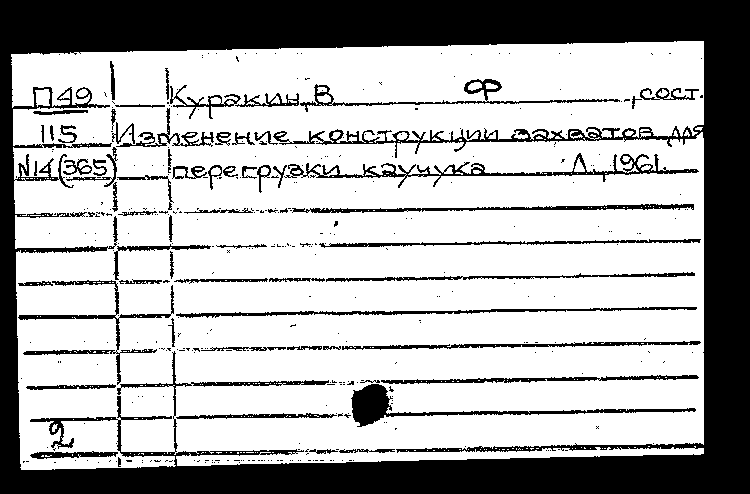 П49 Куракин, В Ф , сост.
115 Изменение конструкции захватов для
N14(365) перегрузки каучука Л., 1961.
2